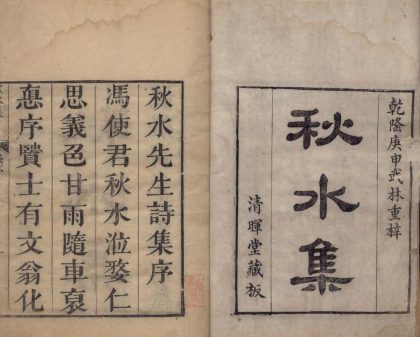 乾隆庚申武林重梓
秋水集
清暉堂藏板
秋水先生詩集序
馮使君秋水涖婺仁
思義色甘雨隨車裒
惪序贒士有文翁化